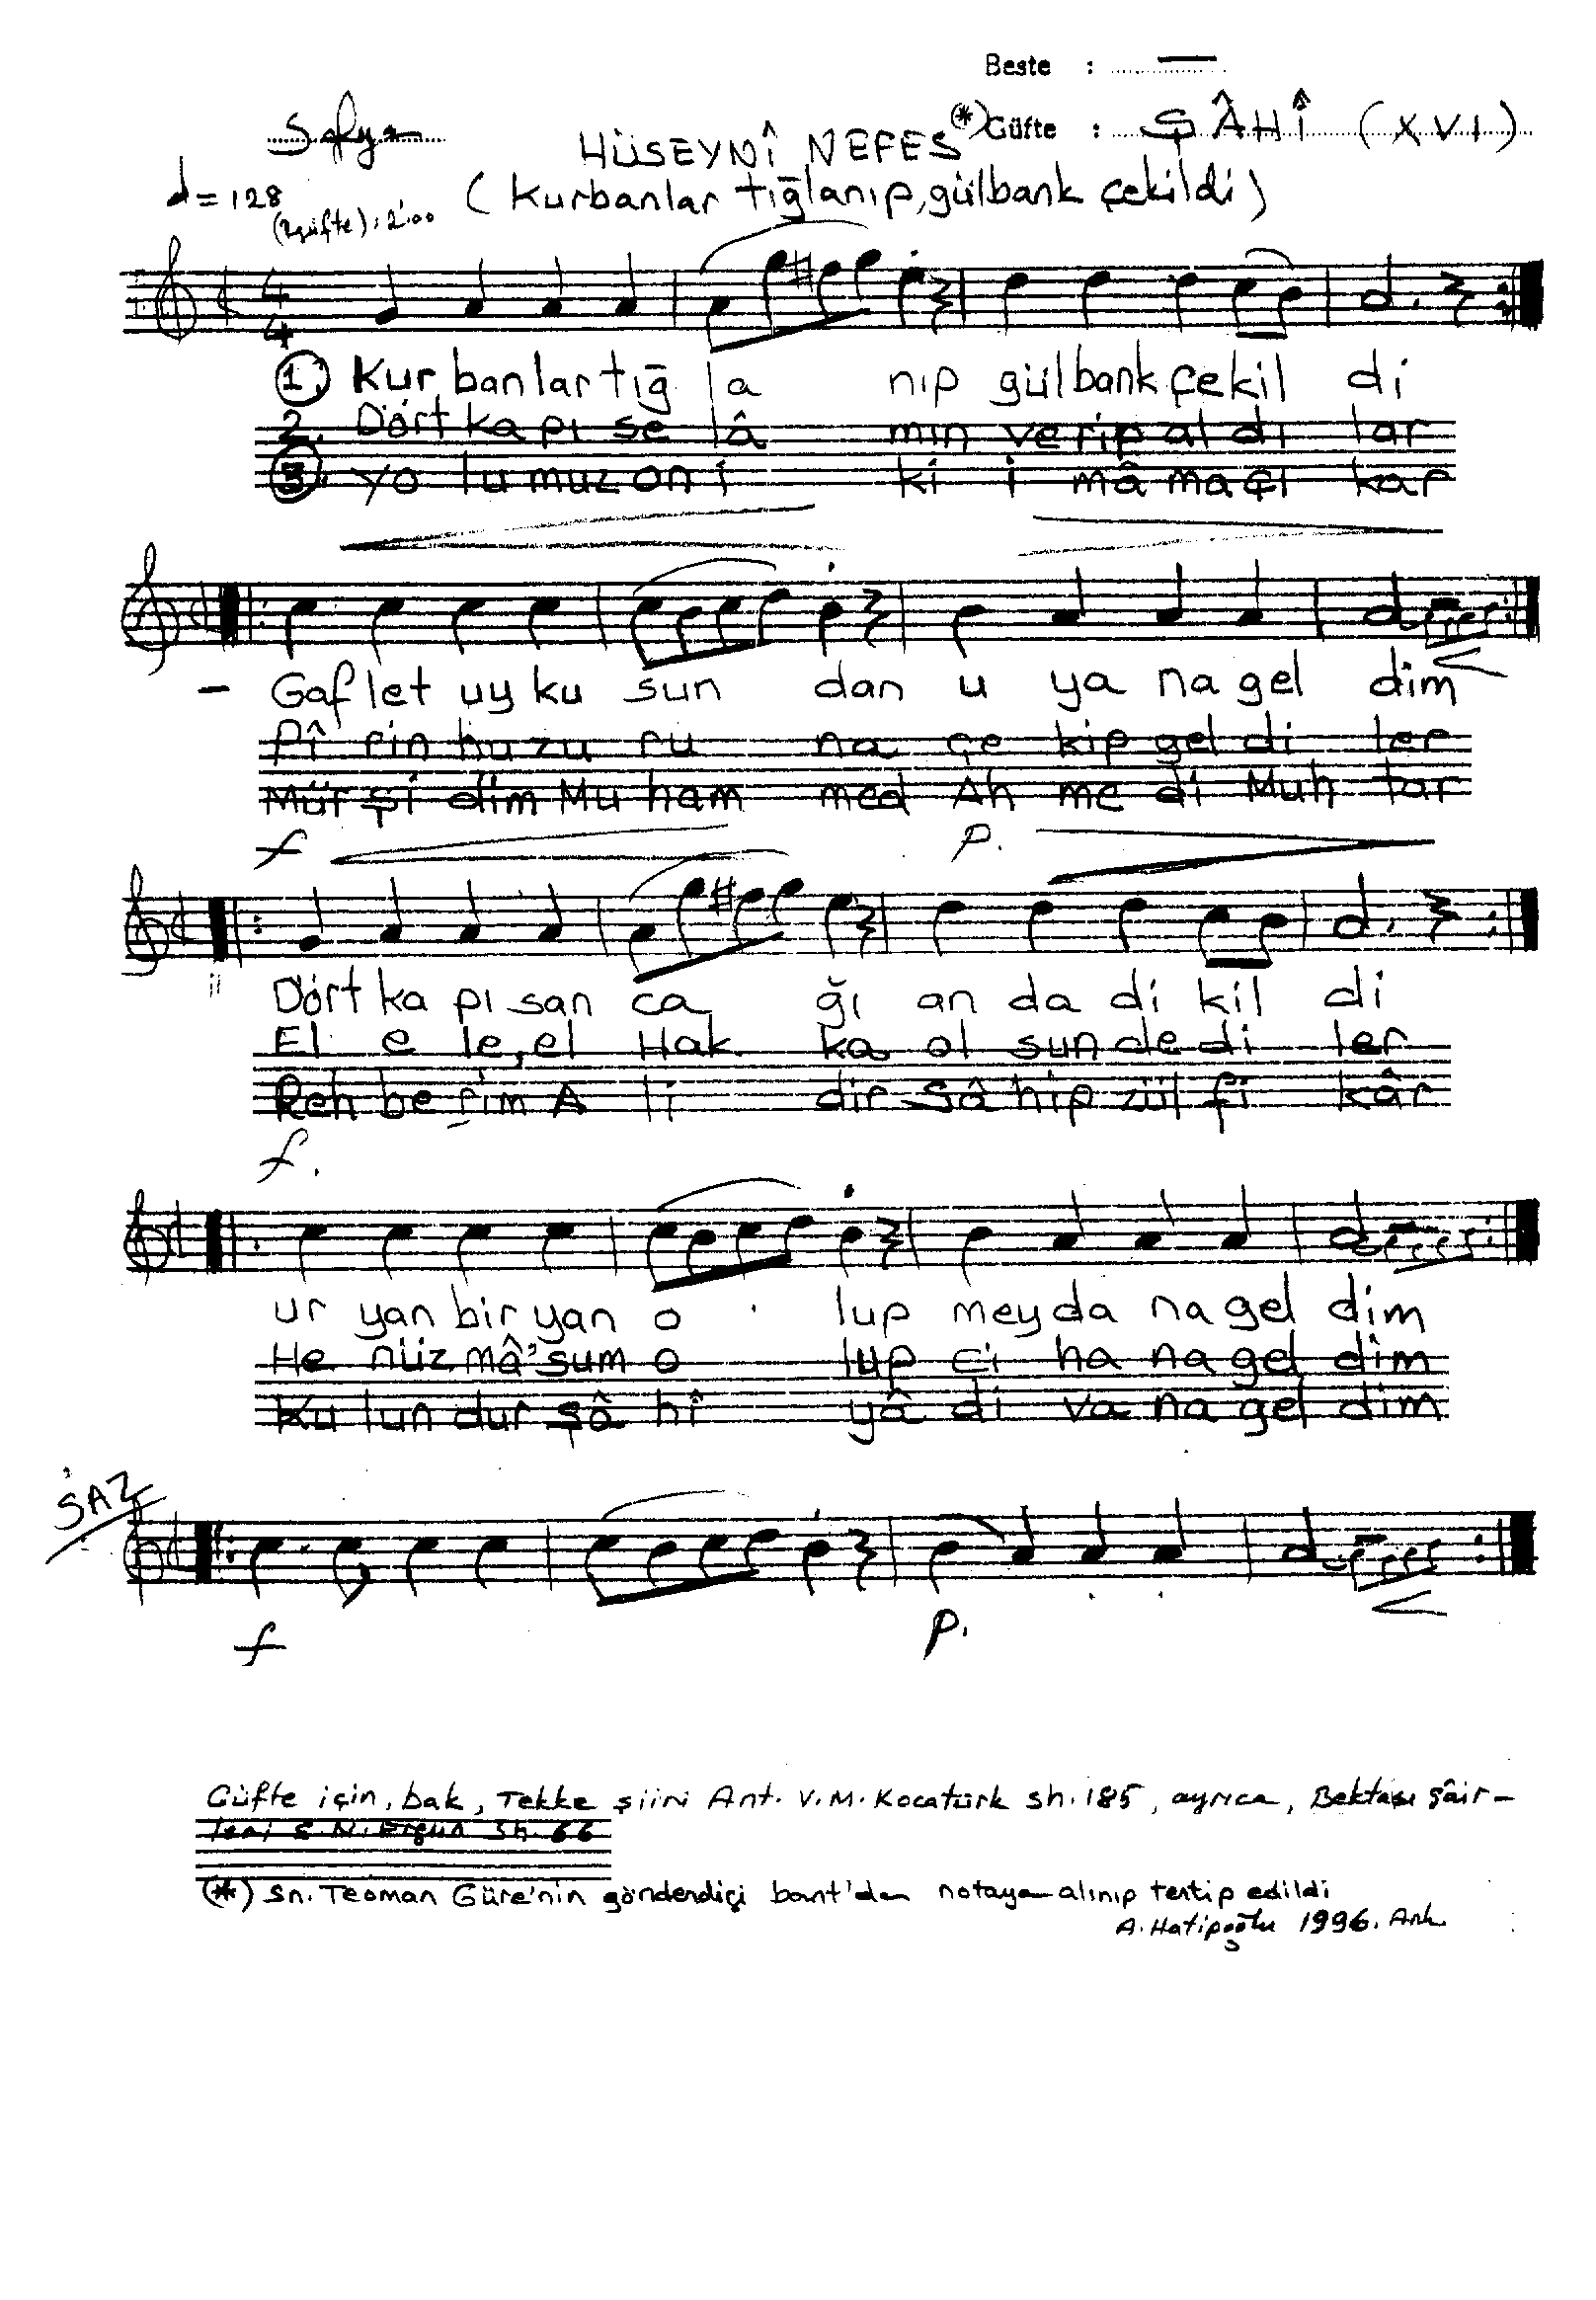 Beste : —
Sofyan
HÜSEYNÎ NEFES (*)
Güfte : ŞÂHÎ (XVI)
= 128
(2güfte): 2'.00
(Kurbanlar tığlanıp, gülbank çekildi)
4
4
1. Kur ban lar tığ la nıp gül bank çe kil di
2. Dört ka pı se lâ mın ve rip al dı lar
3. yo lu muz on i ki i mâ ma çı kar
– Gaf let uy ku sun dan u ya na gel dim
Pî rin hu zu ru na çe kip gel di ler
Mür şi dim Mu ham med Ah me di Muh tar
f p.
Dört ka pı san ca ğı an da di kil di
El e le, el Hak ka ol sun de di ler
Reh be rim A li dir Sâ hip zül fi kâr
f.
ur yan bir yan o lup mey da na gel dim
He nüz mâ' sum o lup ci ha na gel dim
Ku lun dur şâ hî yâ di va na gel dim
SAZ
f p.
Güfte için, bak, Tekke şiiri Ant. V.M. Kocatürk sh. 185, ayrıca, Bektaşi şâir–
leri S.N. Ergun sh. 66
(*) Sn. Teoman Güre'nin gönderdiği bant'dan notaya alınıp tertip edildi
A. Hatipoğlu 1996. Ank.